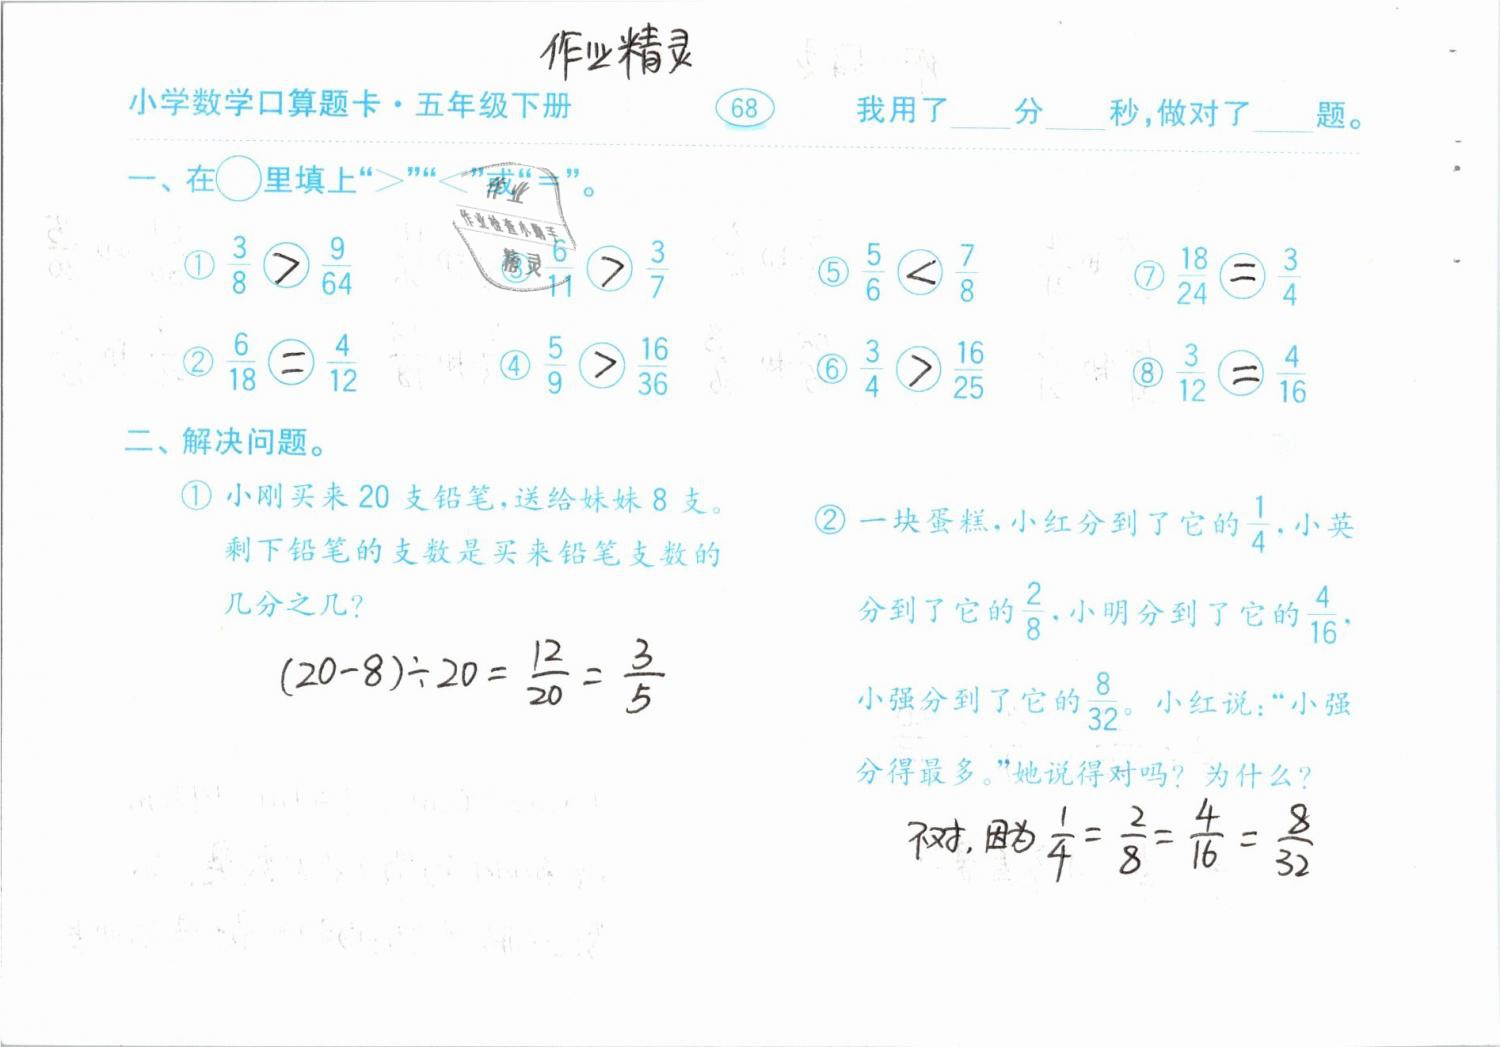 作业精灵
小学数学口算题卡·五年级下册 68 我用了____分____秒,做对了____题。
一、在○里填上“>”“<”或“=”。
作业
作业检查小助手
精灵
① 3/8 > 9/64 ③ 6/11 > 3/7 ⑤ 5/6 < 7/8 ⑦ 18/24 = 3/4
② 6/18 = 4/12 ④ 5/9 > 16/36 ⑥ 3/4 > 16/25 ⑧ 3/12 = 4/16
二、解决问题。
① 小刚买来 20 支铅笔,送给妹妹 8 支。
剩下铅笔的支数是买来铅笔支数的
几分之几?
(20-8)÷20 = 12/20 = 3/5
② 一块蛋糕,小红分到了它的 1/4,小英
分到了它的 2/8,小明分到了它的 4/16,
小强分到了它的 8/32。小红说:“小强
分得最多。”她说得对吗? 为什么?
不对, 因为 1/4 = 2/8 = 4/16 = 8/32